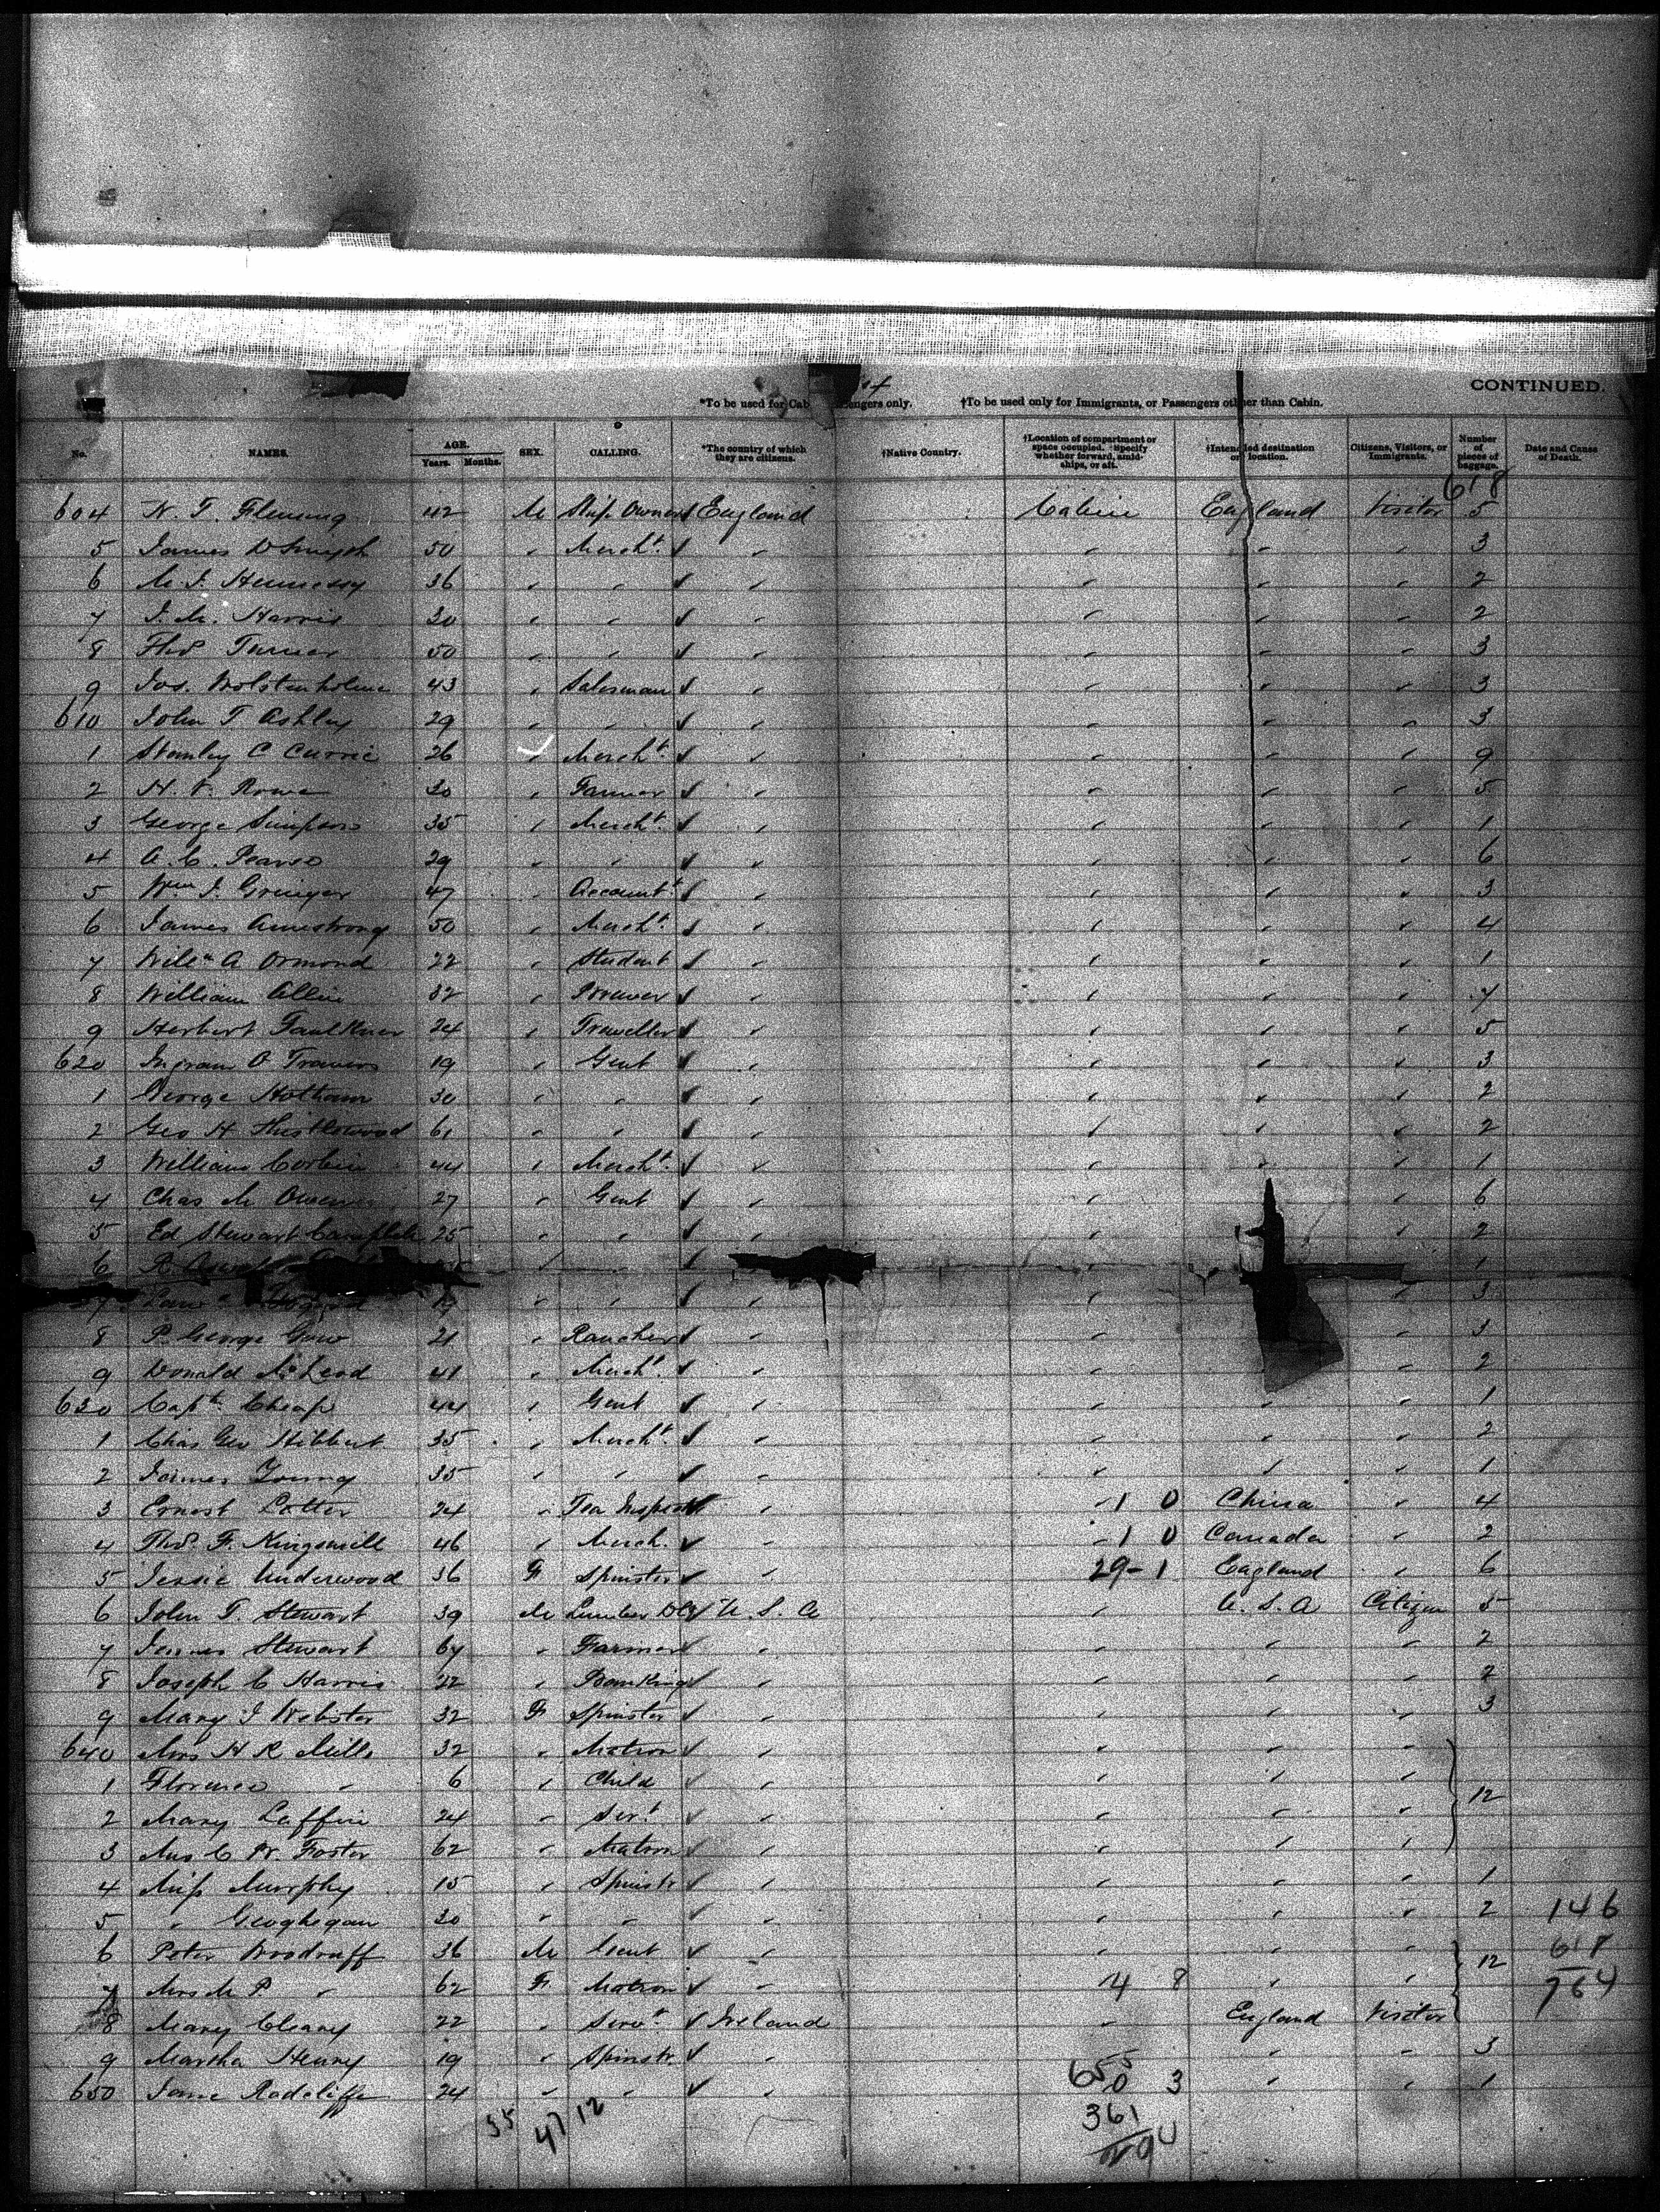 CONTINUED.
*To be used for Cab engers only. †To be used only for Immigrants, or Passengers other than Cabin.
No. NAMES. AGE. Years. Months. SEX. CALLING. *The country of which they are citizens. †Native Country. †Location of compartment or space occupied. *Specify whether forward, amidships, or aft. †Intended destination or location. Citizens, Visitors, or Immigrants. Number of pieces of baggage. Date and Cause of Death.
618
604 N. T. Fleming 42 M Ship Owner England Cabin England Visitor 5
5 James D Smyth 50 " Mercht. ✓ " " " " 3
6 M. J. Hennessy 36 " " ✓ " " " " 2
7 J. M. Harris 30 " " ✓ " " " " 2
8 Thos Turner 50 " " ✓ " " " " 3
9 Jos. Wolstenholme 43 " Salesman ✓ " " " " 3
610 John T Ashley 29 " " ✓ " " " " 3
1 Stanley C Currie 26 " Mercht. ✓ " " " " 9
2 H. Rowe 30 " Farmer ✓ " " " " 5
3 George Simpson 35 " Mercht. ✓ " " " " 1
4 A. C. Pearse 29 " " ✓ " " " " 6
5 Wm J. Grainger 47 " Accountt ✓ " " " " 3
6 James Armstrong 50 " Mercht. ✓ " " " " 4
7 Willm A Ormond 22 " Student ✓ " " " " 1
8 William Allin 32 " Brewer ✓ " " " " 7
9 Herbert Faulkner 24 " Traveller ✓ " " " " 5
620 Ingram O Travers 19 " Gent ✓ " " " " 3
1 George Hotham 30 " " ✓ " " " " 2
2 Geo H Thistlewood 61 " " ✓ " " " " 2
3 William Corbin 44 " Mercht. ✓ " " " " 1
4 Chas M Owen 27 " Gent ✓ " " " 6
5 Ed Stewart Campbell 25 " " ✓ " " " 2
6 R ✓ " " 1
7 19 " " ✓ " " " 3
8 P. George Gow 21 " Rancher ✓ " " " 3
9 Donald McLeod 41 " Mercht. ✓ " " " 2
630 Captn. Cheape 44 " Gent ✓ " " " " 1
1 Chas Geo Hibbert 35 " Mercht. ✓ " " " " 2
2 James Young 35 " " ✓ " " " " 1
3 Ernest Latter 24 " Tea Inspect " " 1 0 China " 4
4 Thos. F. Kingsmill 46 " Merch. ✓ " " 1 0 Canada " 2
5 Jessie Underwood 36 F Spinster ✓ " 29-1 England " 6
6 John T. Stewart 39 M Lumber Dlr ✓ U. S. A " U. S. A Citizen 5
7 James Stewart 67 " Farmer ✓ " " " " 2
8 Joseph C Harris 22 " Banking ✓ " " " " 2
9 Mary J Webster 32 F Spinster ✓ " " " " 3
640 Mrs H R Mills 32 " Matron ✓ " " " "
1 Florence " 6 " Child ✓ " " " " 12
2 Mary Laffin 24 " Servt ✓ " " " "
3 Mrs C W. Foster 62 " Matron ✓ " " " "
4 Miss Murphy 15 " Spinstr ✓ " " " " 1
5 " Geoghegan 30 " " ✓ " " " " 2 146
6 Peter Woodruff 36 M Gent ✓ " " " " 12 618
7 Mrs M P " 62 F Matron ✓ " 4 8 " " 764
8 Mary Cleary 22 " Servt. ✓ Ireland " England Visitor
9 Martha Henry 19 " Spinstr. ✓ " " " " 3
650 Jane Radcliffe 24 " " ✓ " 0 3 " " 1
655
35 47 12 361